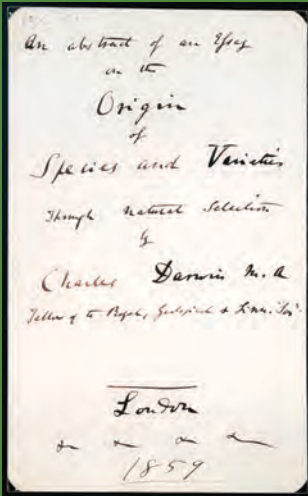 An abstract of an Essay
on the
Origin
of
Species and Varieties
Through natural Selection
by
Charles Darwin M. A
Fellow of the Royal, Geological & Linn. Soc.
London
1859